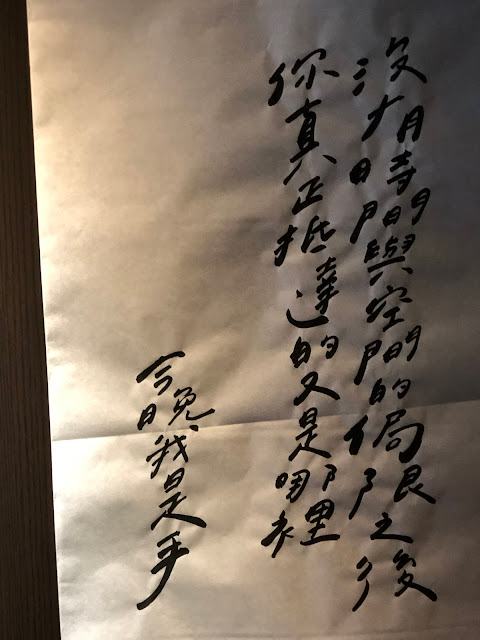 沒有時間與空間的侷限之後
你真正抵達的又是哪裡
今晚我是手